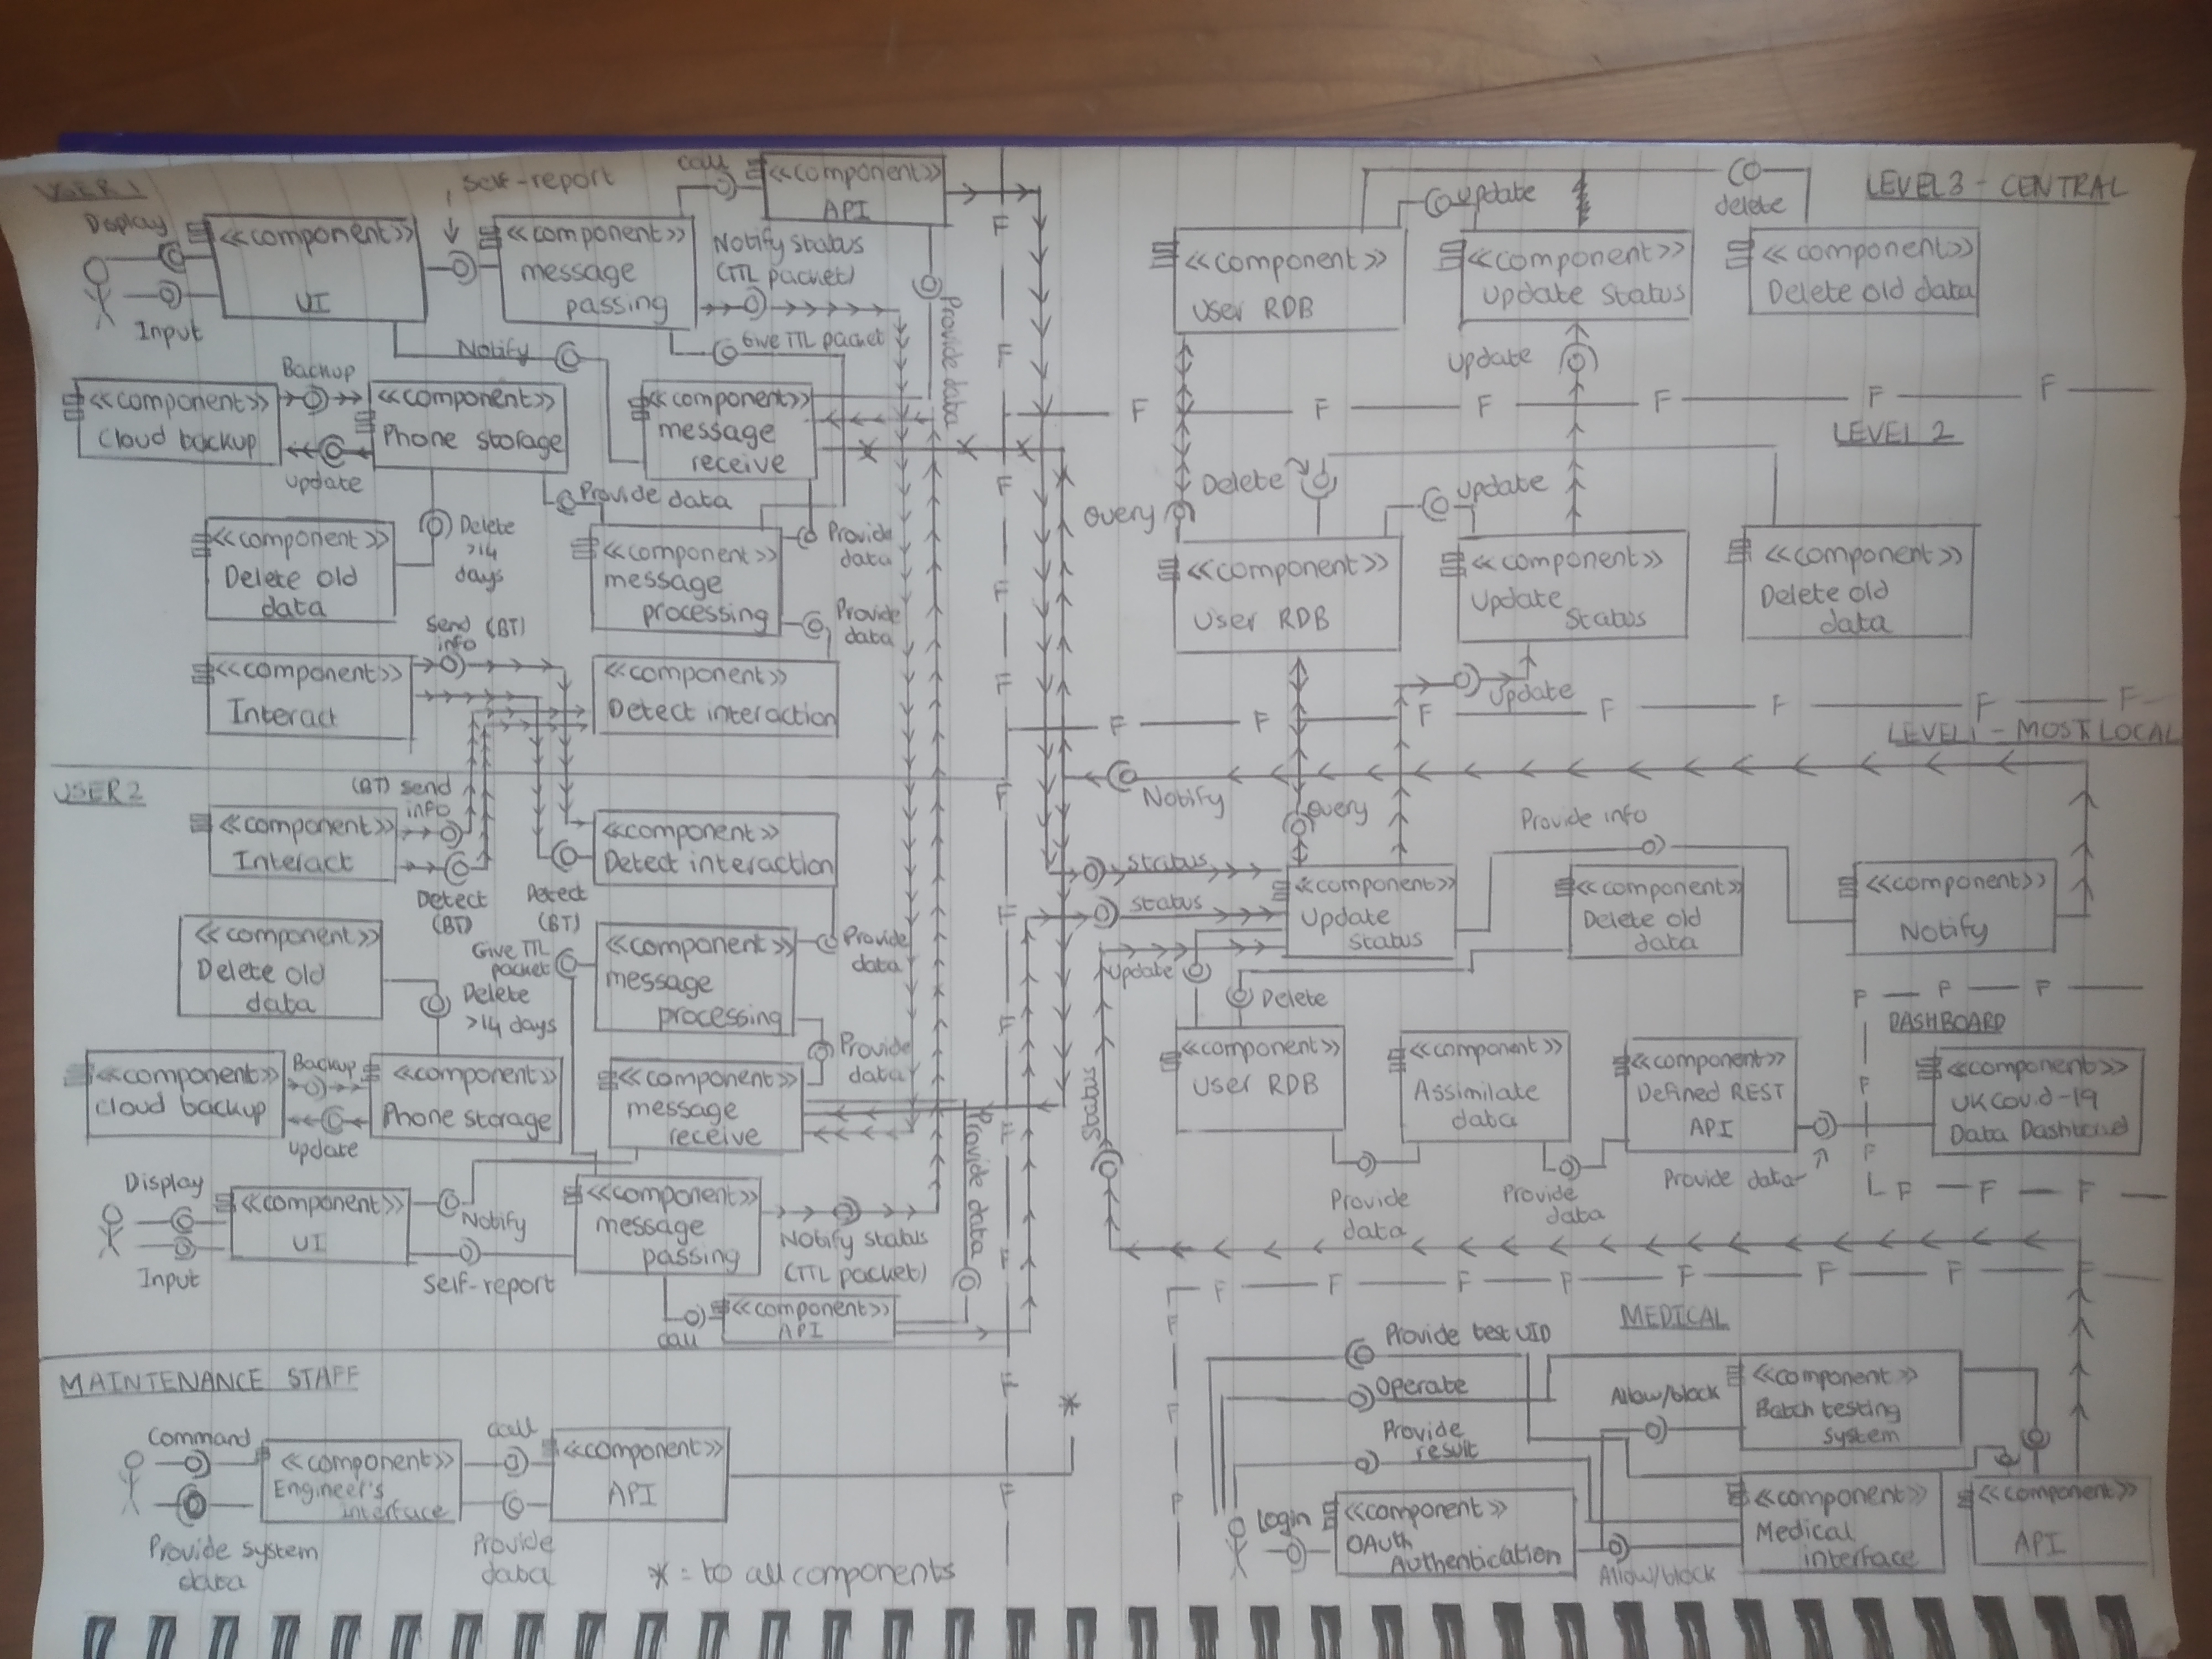 USER 1
Display
Input
<<component>>
UI
Self-report
<<component>>
message
passing
call
<<component>>
API
Notify status
(TTL packet)
Give TTL packet
Provide data
Notify
<<component>>
Cloud backup
Backup
update
<<component>>
Phone storage
<<component>>
message
receive
Provide data
<<component>>
Delete old
data
Delete
>14
days
<<component>>
message
processing
Provide
data
Provide
data
Send (BT)
info
<<component>>
Interact
<<component>>
Detect interaction
USER 2
(BT) send
info
<<component>>
Interact
Detect
(BT)
Detect
(BT)
<<component>>
Detect interaction
<<component>>
Delete old
data
Delete
>14 days
Give TTL
packet
<<component>>
message
processing
Provide
data
Provide
data
<<component>>
Cloud backup
Backup
update
<<component>>
Phone storage
<<component>>
message
receive
Provide data
Display
Input
<<component>>
UI
Notify
Self-report
<<component>>
message
passing
Notify status
(TTL packet)
call
<<component>>
API
MAINTENANCE STAFF
Command
Provide system
data
<<component>>
Engineer's
interface
call
Provide
data
<<component>>
API
* = to all components
LEVEL 3 - CENTRAL
update
delete
<<component>>
User RDB
<<component>>
Update Status
<<component>>
Delete old data
update
F
F
F
F
F
F
LEVEL 2
Query
Delete
update
<<component>>
User RDB
<<component>>
Update
Status
<<component>>
Delete old
data
update
F
F
F
F
F
F
F
LEVEL 1 - MOST LOCAL
Notify
Query
Provide info
status
status
update
Delete
Status
<<component>>
Update
Status
<<component>>
Delete old
data
<<component>>
Notify
F
F
F
DASHBOARD
<<component>>
User RDB
<<component>>
Assimilate
data
<<component>>
Defined REST
API
<<component>>
UK Covid-19
Data Dashboard
Provide
data
Provide
data
Provide data
F
F
F
F
F
F
F
F
F
F
F
F
MEDICAL
Provide test UID
Operate
Provide
result
Allow/block
<<component>>
Batch testing
System
Login
<<component>>
OAuth
Authentication
Allow/block
<<component>>
Medical
interface
<<component>>
API